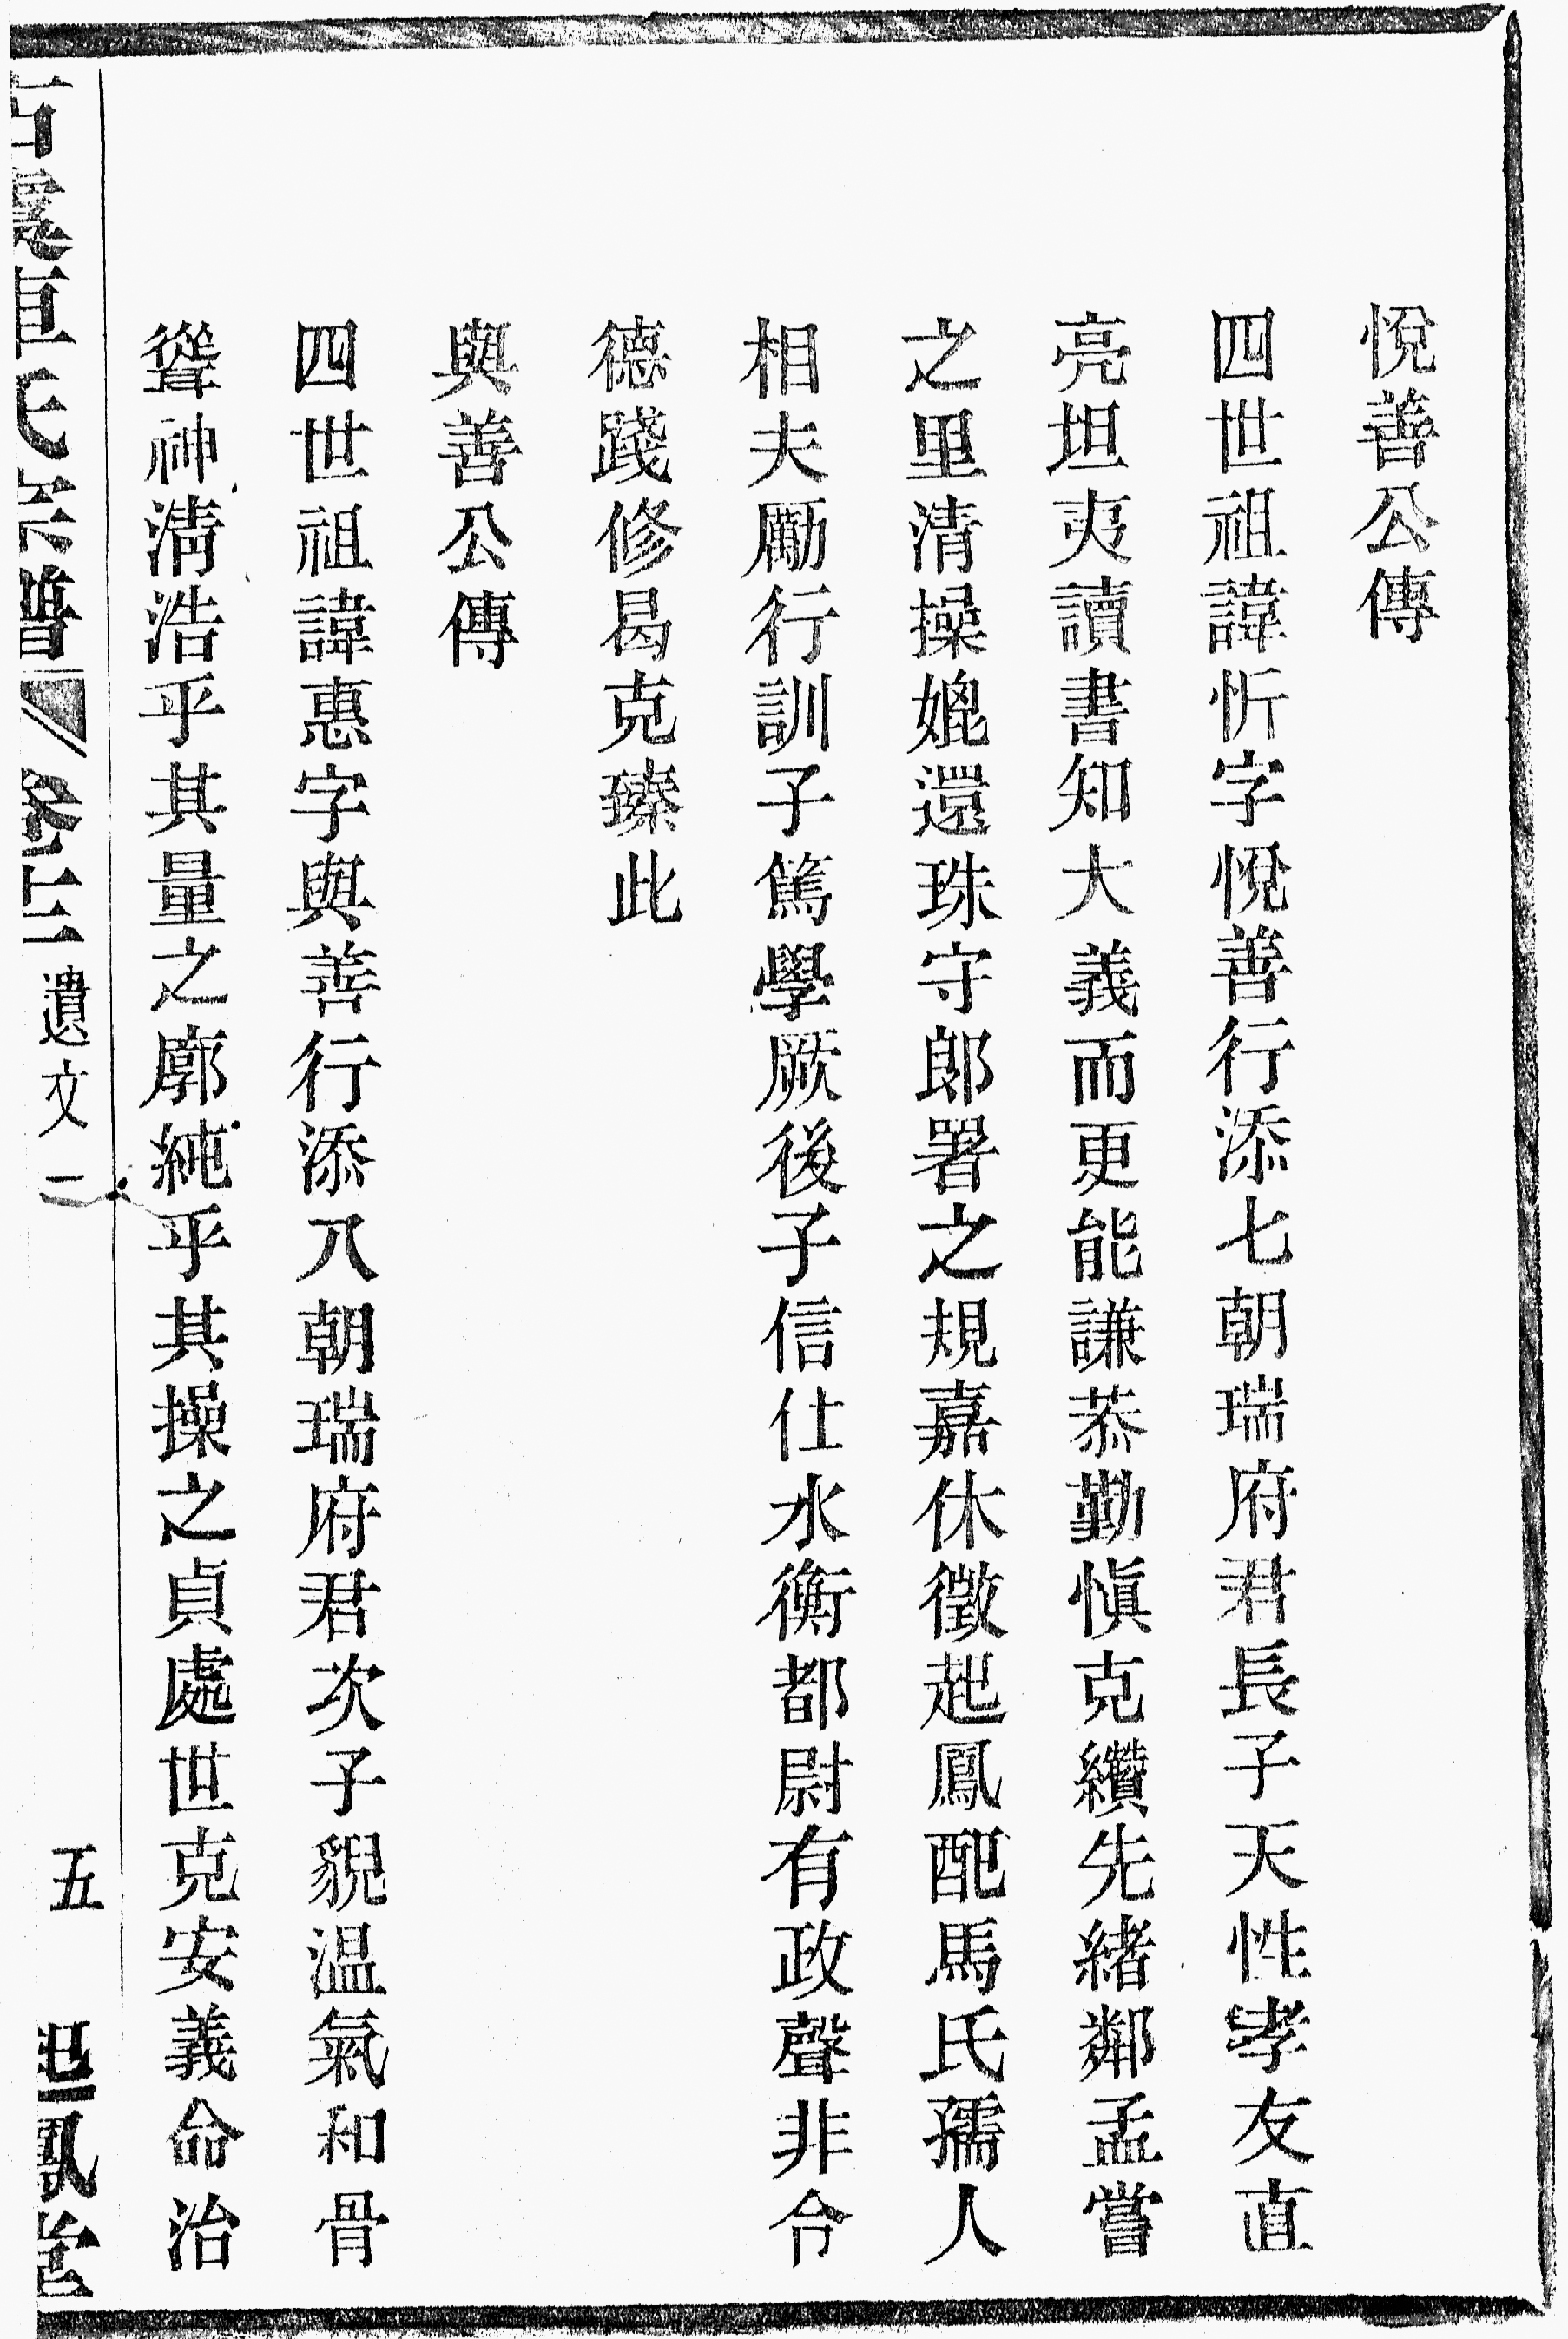 悅善公傳
四世祖諱忻字悅善行添七朝瑞府君長子天性孝友直
亮坦夷讀書知大義而更能謙恭勤愼克纘先緒鄰孟嘗
之里清操媲還珠守郎署之規嘉休徵起鳳配馬氏孺人
相夫勵行訓子篤學厥後子信仕水衡都尉有政聲非令
德踐修曷克臻此
與善公傳
四世祖諱惠字與善行添八朝瑞府君次子貌溫氣和骨
聳神清浩乎其量之廓純乎其操之貞處世克安義命治
古虞車氏宗譜 卷十二 遺文一 五 起鳳堂